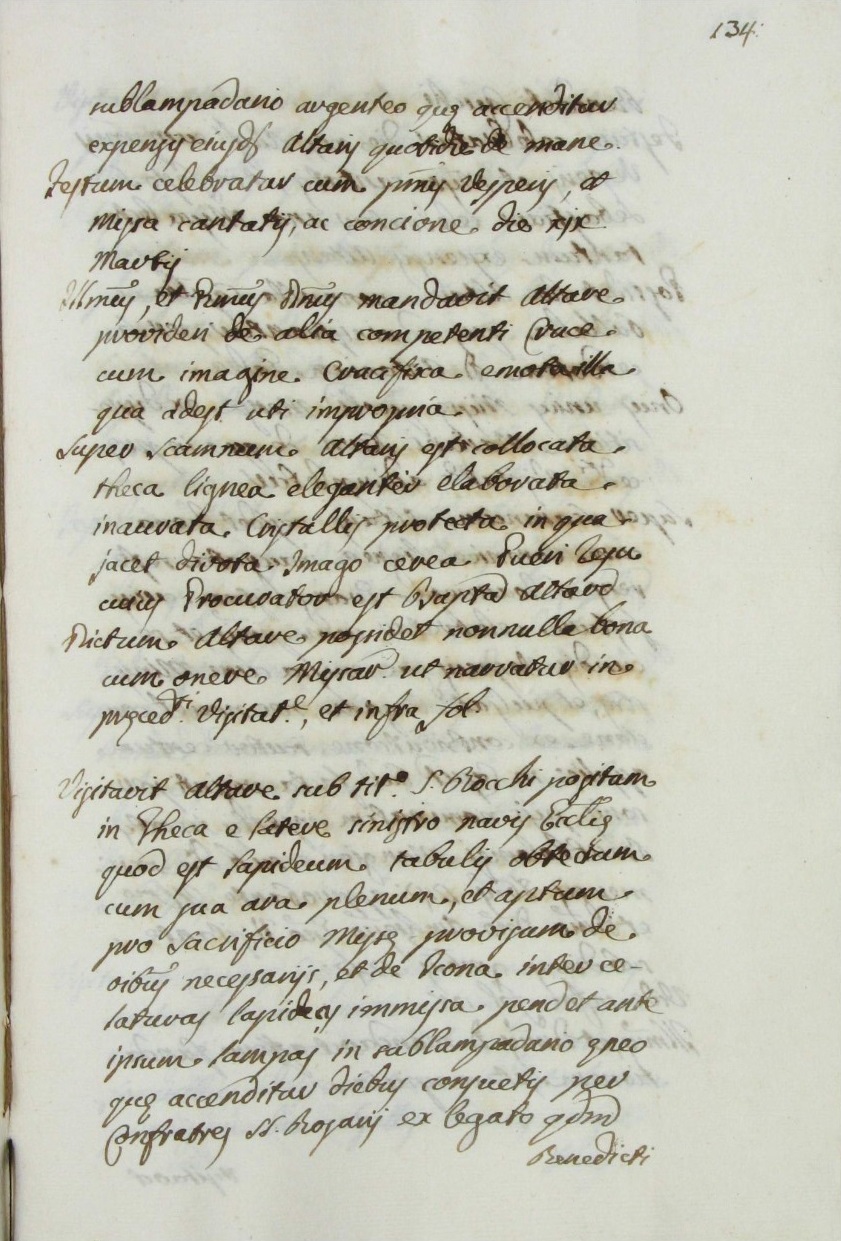 134.
sublampadario argenteo quę accenditur
expensis eiusd. Altaris quotidie de mane.
Festum celebratur cum pmis Vesperis, et
Missa cantatis, ac concione die xix
Martij
Illmus, et Rmus Dnus mandavit Altare
provideri de alia competenti Cruce
cum imagine Crucifixa emota illa
qua adest uti impropria
Super scamnum Altaris est collocata
theca lignea eleganter elaborata
inaurata Crystallis protecta in qua
jacet divota Imago cerea Pueri Jesu
cuius Procurator est Altaris
Dictum Altare possidet nonnulla bona
cum onere Missar. ut narratur in
pręced.ti Visitat.e, et infra fol.
Visitavit Altare sub tit.o S. Rocchi positum
in Theca e latere sinistro navis Ecclię
quod est lapideum tabulis obtectum
cum sua ara plenum, et aptum
pro Sacrificio Missę provisum de
oibus necessarijs, et de Icona inter ce-
laturas lapideas immissa pendet ante
ipsum lampas in sublampadario ęneo
quę accenditur diebus consuetis per
Confratres SS. Rosarij ex legato qdm
Benedicti